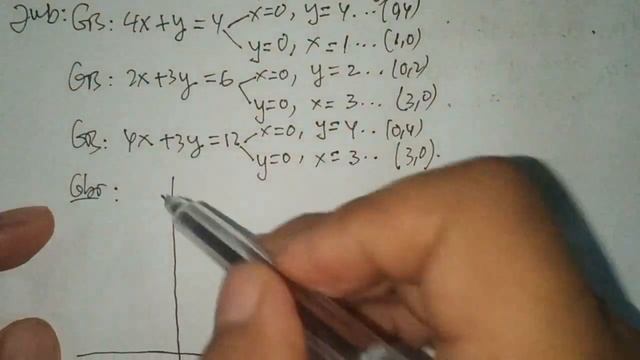 Jwb: GB: 4x+y=4 x=0, y=4... (0,4)
y=0, x=1... (1,0)
GB: 2x+3y=6 x=0, y=2... (0,2)
y=0, x=3... (3,0).
GB: 4x+3y=12 x=0, y=4... (0,4)
y=0, x=3... (3,0).
Gbr: